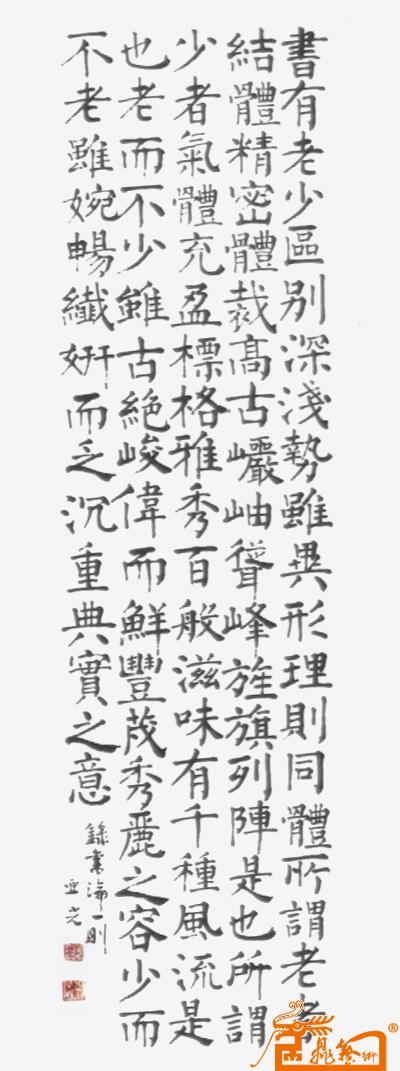 書有老少區别深淺勢雖異形理則同體所謂老者
結體精密體裁高古巖岫聳峰旌旗列陣是也所謂
少者氣體充盈標格雅秀百般滋味有千種風流是
也老而不少雖古絶峻偉而鮮豐茂秀麗之容少而
不老雖婉暢纖妍而乏沉重典實之意
錄書論一則
亚光